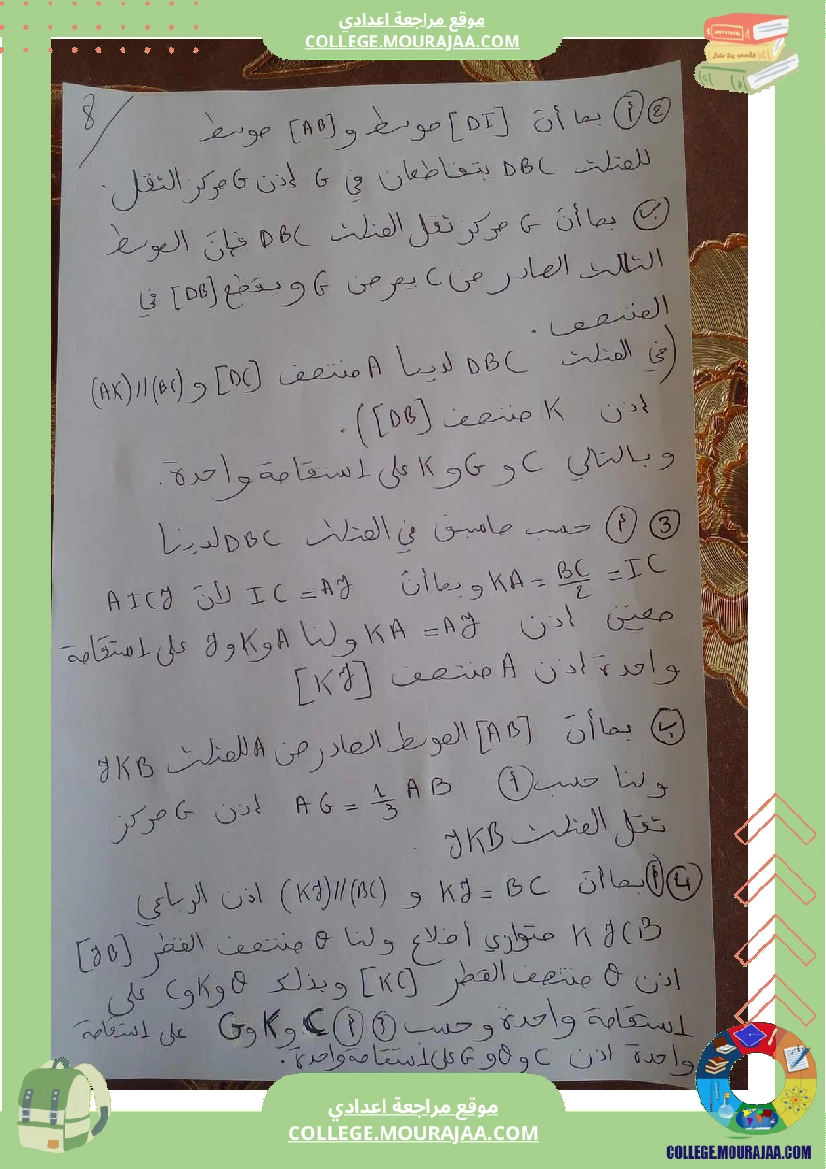 موقع مراجعة اعدادي
COLLEGE.MOURAJAA.COM
8
2) أ) بما أن [DI] موسط و [AB] موسط
للمثلث DBC يتقاطعان في G إذن G مركز الثقل.
ب) بما أن G مركز ثقل المثلث DBC فإن الموسط
الثالث الصادر من C يمر من G ويقطع [DB] في
المنتصف.
(في المثلث DBC لدينا A منتصف [DC] و (AK)//(BC)
إذن K منتصف [DB]).
وبالتالي C و G و K على استقامة واحدة.
3) أ) حسب ماسبق في المثلث DBC لدينا
KA = BC/2 = IC وبما أن IC = AJ لأن AICJ
معين اذن KA = AJ ولنا A و K و J على استقامة
واحدة اذن A منتصف [KJ]
ب) بما أن [AB] الموسط الصادر من A للمثلث JKB
ولنا حسب أ) AG = 1/3 AB اذن G مركز
ثقل المثلث JKB.
4) أ) بما أن KJ = BC و (KJ)//(BC) اذن الرباعي
KJCB متوازي أضلاع ولنا θ منتصف القطر [JB]
اذن θ منتصف القطر [KC] وبذلك θ و K و C على
استقامة واحدة وحسب 2) أ) C و K و G على استقامة
واحدة اذن C و θ و G على استقامة واحدة.
موقع مراجعة اعدادي
COLLEGE.MOURAJAA.COM
COLLEGE.MOURAJAA.COM